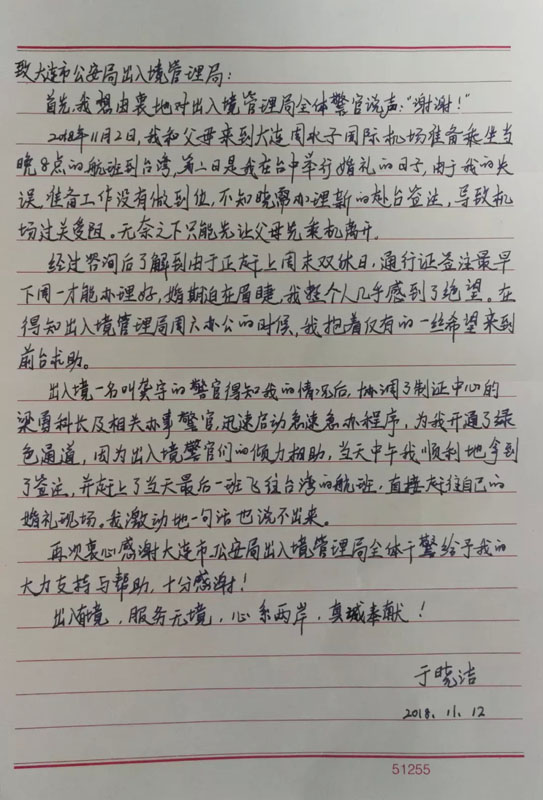 致大连市公安局出入境管理局：
首先，我想由衷地对出入境管理局全体警官说声："谢谢！"
2018年11月2日，我和父母来到大连周水子国际机场准备乘坐当
晚8点的航班到台湾，第二日是我在台中举行婚礼的日子，由于我的失
误，准备工作没有做到位，不知晓需办理新的赴台签注，导致机
场过关受阻。无奈之下只能先让父母先乘机离开。
经过咨询后了解到由于正赶上周末双休日，通行证签注最早
下周一才能办理好，婚期迫在眉睫，我整个人几乎感到了绝望。在
得知出入境管理局周六办公的时候，我抱着仅有的一丝希望来到
前台求助。
出入境一名叫龚宇的警官得知我的情况后，协调了制证中心的
梁勇科长及相关办事警官，迅速启动急速急办程序，为我开通了绿
色通道，因为出入境警官们的倾力相助，当天中午我顺利地拿到
了签注，并赶上了当天最后一班飞往台湾的航班，直接赶往自己的
婚礼现场。我激动地一句话也说不出来。
再次衷心感谢大连市公安局出入境管理局全体干警给予我的
大力支持与帮助，十分感谢！
出入有境，服务无境，心系两岸，真诚奉献！
于晓洁
2018.11.12
51255